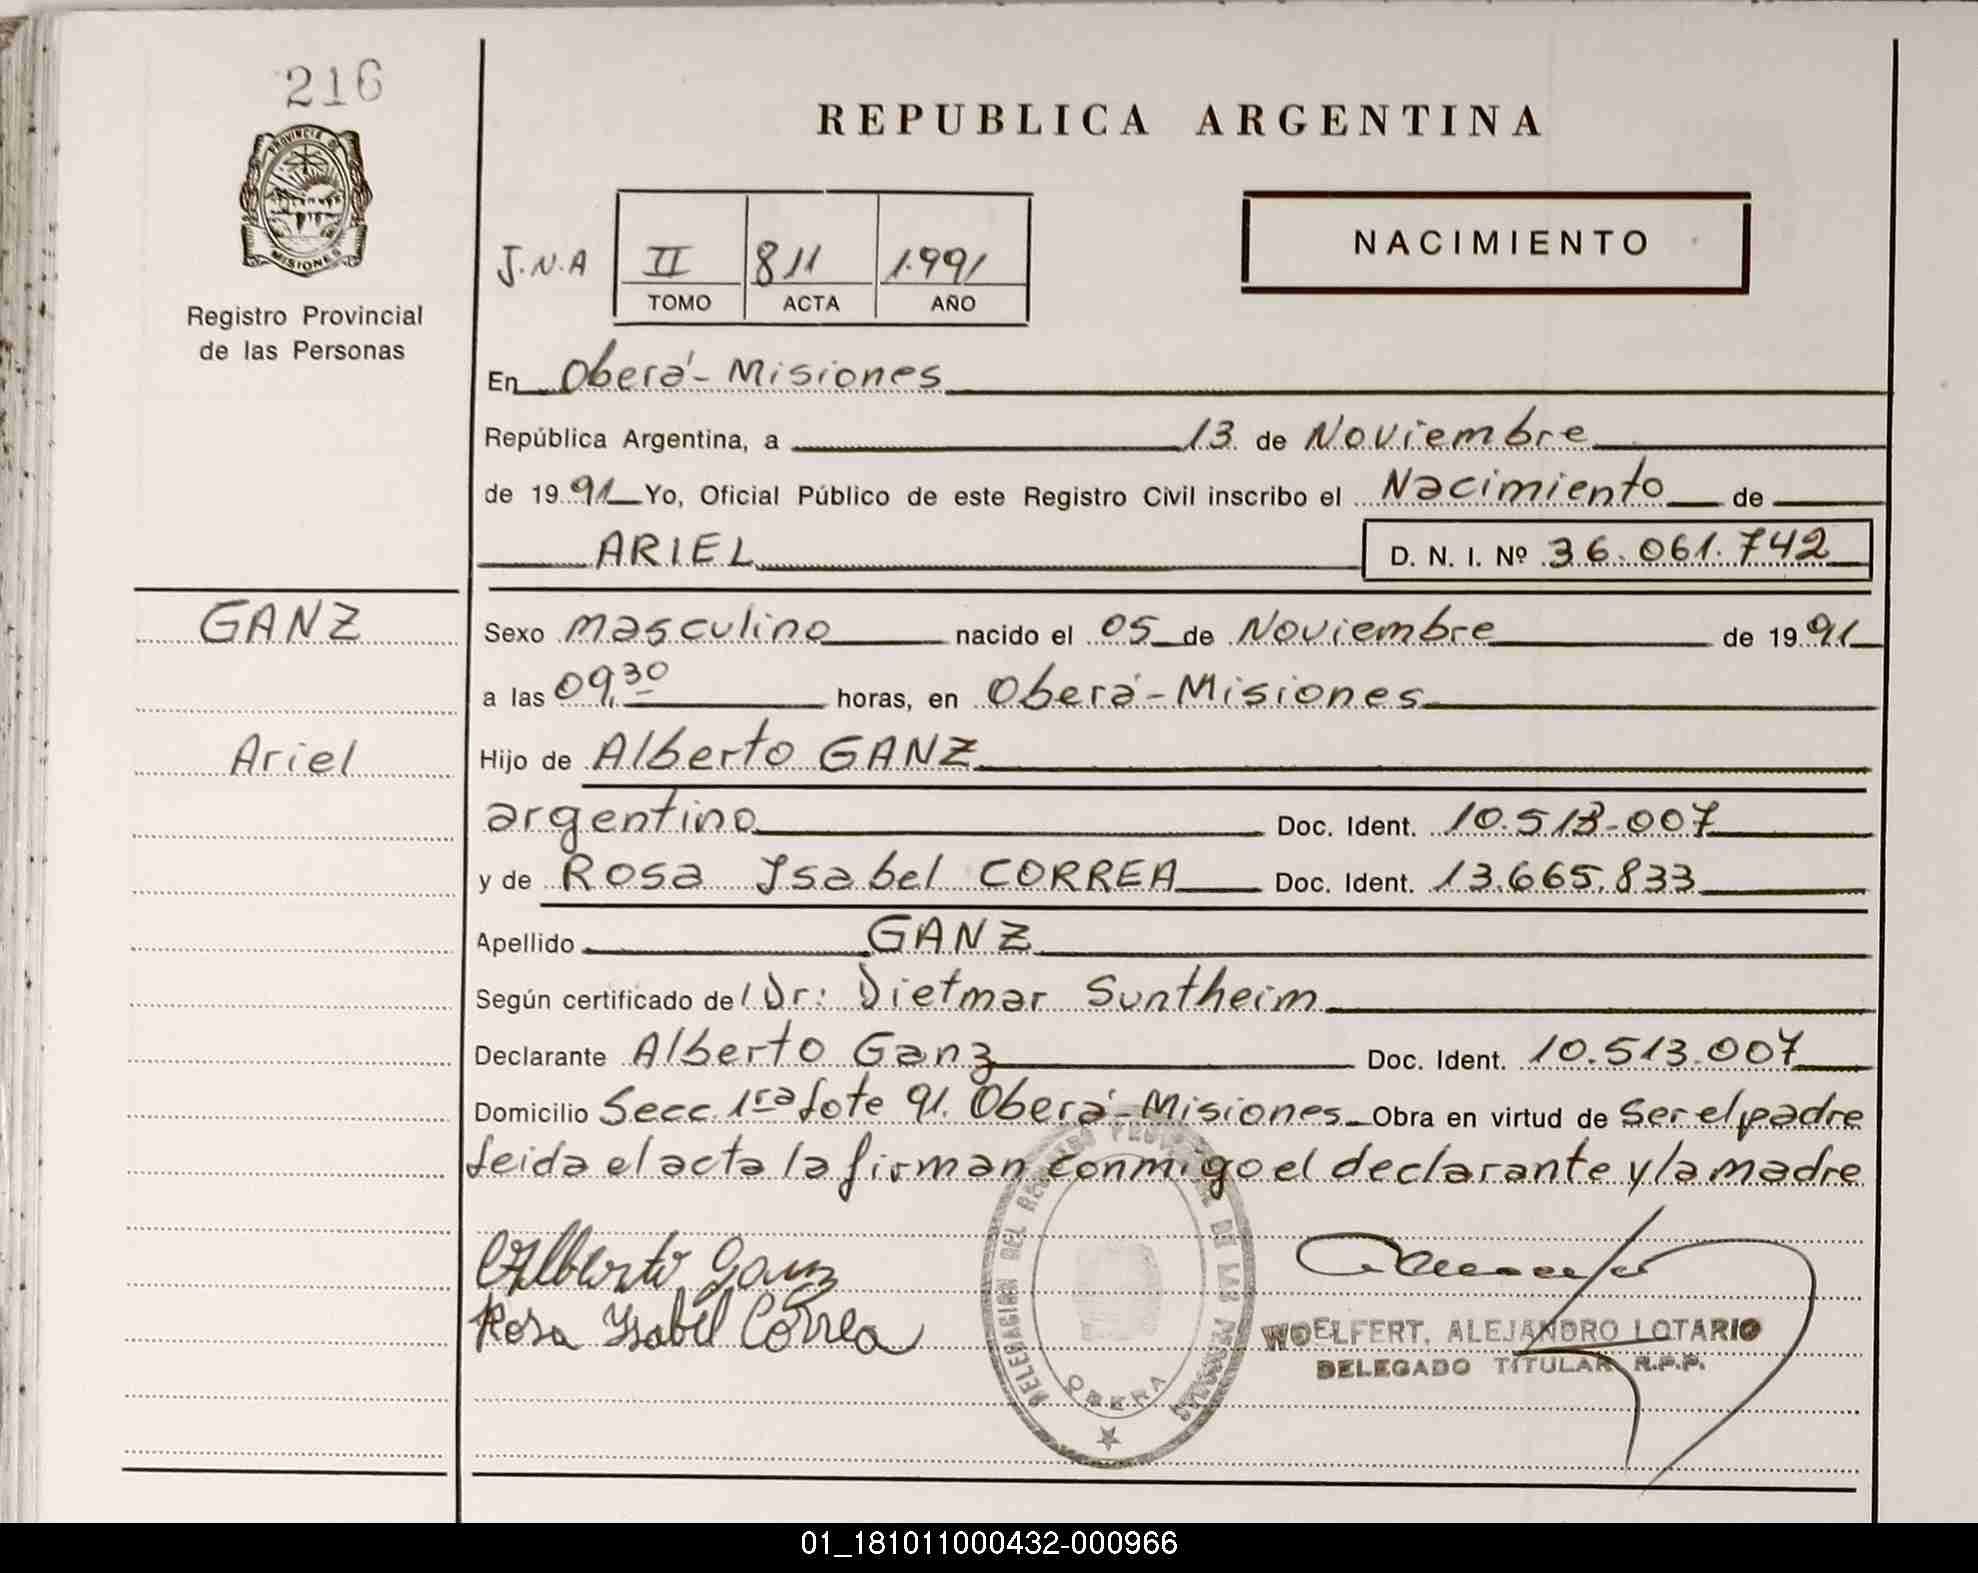 216
PROVINCIA DE
MISIONES
Registro Provincial
de las Personas
GANZ
Ariel
REPUBLICA ARGENTINA
J.N.A II 811 1.991
TOMO ACTA AÑO
NACIMIENTO
En Oberá - Misiones
República Argentina, a 13 de Noviembre
de 1991 Yo, Oficial Público de este Registro Civil inscribo el Nacimiento de
ARIEL D. N. I. Nº 36.061.742
Sexo masculino nacido el 05 de Noviembre de 1991
a las 09,30 horas, en Oberá - Misiones
Hijo de Alberto GANZ
argentino Doc. Ident. 10.513.007
y de Rosa Isabel CORREA Doc. Ident. 13.665.833
Apellido GANZ
Según certificado del Dr: Dietmar Suntheim
Declarante Alberto Ganz Doc. Ident. 10.513.007
Domicilio Secc. 1ra Lote 91. Oberá - Misiones Obra en virtud de Ser el padre
Leida el acta la firman conmigo el declarante y la madre
Alberto Ganz
Rosa Ysabel Correa
DELEGACION DEL REGISTRO PROVINCIAL DE LAS PERSONAS
OBERA
WOELFERT, ALEJANDRO LOTARIO
DELEGADO TITULAR R.P.P.
01_181011000432-000966